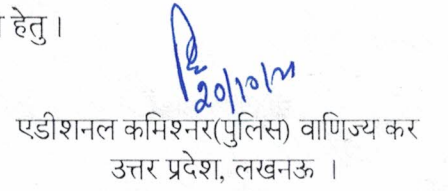 हेतु ।
20/10/21
एडीशनल कमिश्नर(पुलिस) वाणिज्य कर
उत्तर प्रदेश, लखनऊ ।